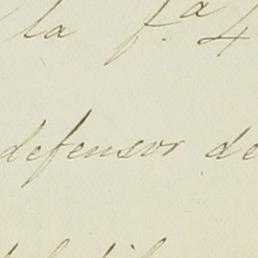 la f.ª 4
defensor de